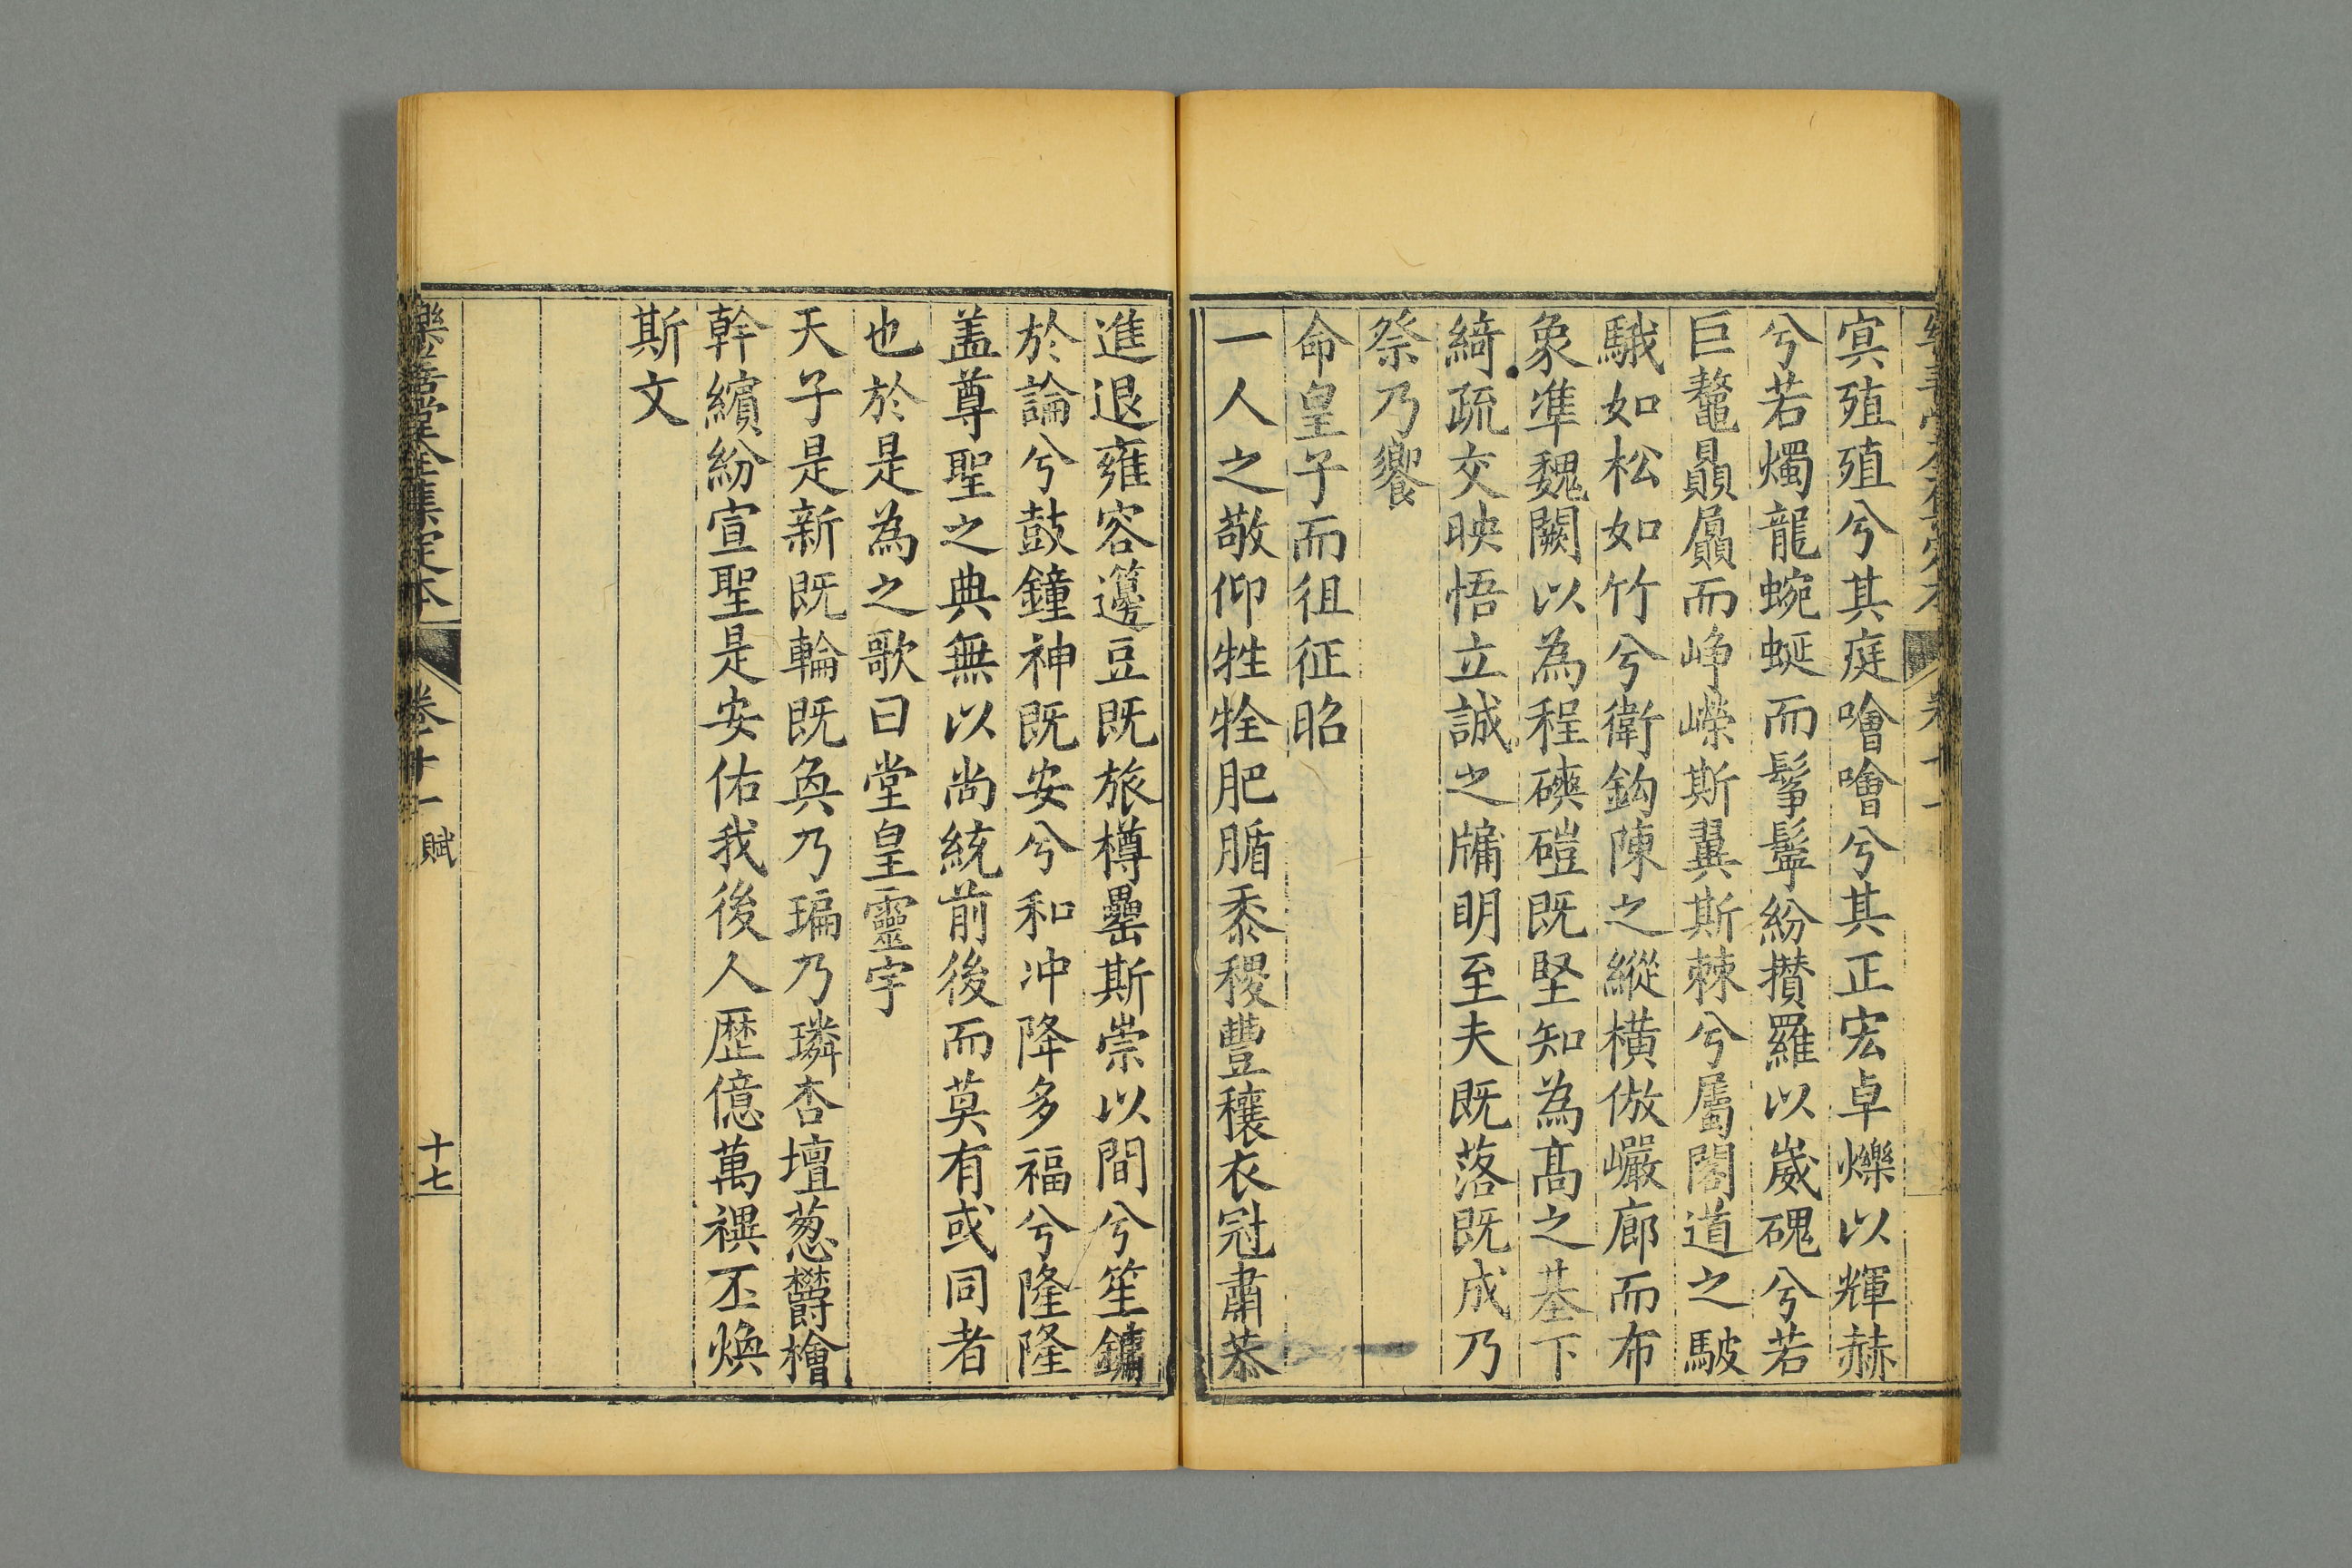 寘殖殖兮其庭噲噲兮其正宏卓爍以輝赫
兮若燭龍蜿蜒而髼鬙紛攢羅以嵗磈兮若
巨鼇贔屭而崢嶸斯翼斯棘兮屬閣道之駊
騀如松如竹兮衛鈎陳之縱橫倣巖廊而布
象準魏闕以為程磢磑既堅知為髙之基下
綺疏交映悟立誠之牖明至夫既落既成乃
祭乃饗
命皇子而徂征昭
一人之敬仰牲牷肥腯黍稷豐穰衣冠肅恭
進退雍容籩豆既旅樽罍斯崇以間兮笙鏞
於論兮鼓鐘神既安兮和冲降多福兮隆隆
盖尊聖之典無以尚統前後而莫有或同者
也於是為之歌曰堂皇靈宇
天子是新既輪既奐乃㻞乃璘杏壇葱欝檜
幹繽紛宣聖是安佑我後人歴億萬禩丕煥
斯文
樂善堂全集定本
卷十一 賦
十七